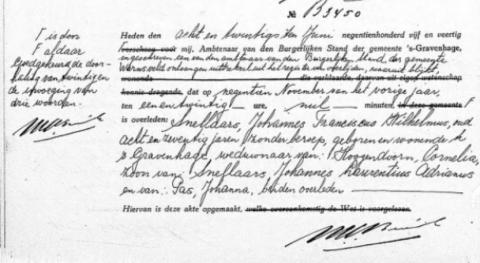 № B3450
F is door
F aldaar
Goedgekeurd de door-
haling van twintig en
de invoeging van
drie woorden.
Heden den acht en twintigsten Juni negentienhonderd vijf en veertig
verscheen voor mij, Ambtenaar van den Burgerlijken Stand der gemeente 's-Gravenhage,
ingeschreven een van den ambtenaar van den Burgerlijken Stand der gemeente
Warnsveld ontvangen uittreksel uit het register van overlijden, waaruit blijkt,
wonende die verklaarde, daarvan uit eigen wetenschap
kennis dragende, dat op negentien November van het vorige jaar,
ten een en twintig ure, nul minuten, in deze gemeente F
is overleden: Snellaars, Johannes Franciscus Wilhelmus, oud
acht en zeventig jaren, zonder beroep, geboren en wonende te
's Gravenhage, weduwnaar van: Hoogendoorn, Cornelia,
zoon van: Snellaars, Johannes Laurentius Adrianus
en van: Tas, Johanna, beiden overleden
Hiervan is deze akte opgemaakt, welke overeenkomstig de Wet is voorgelezen.